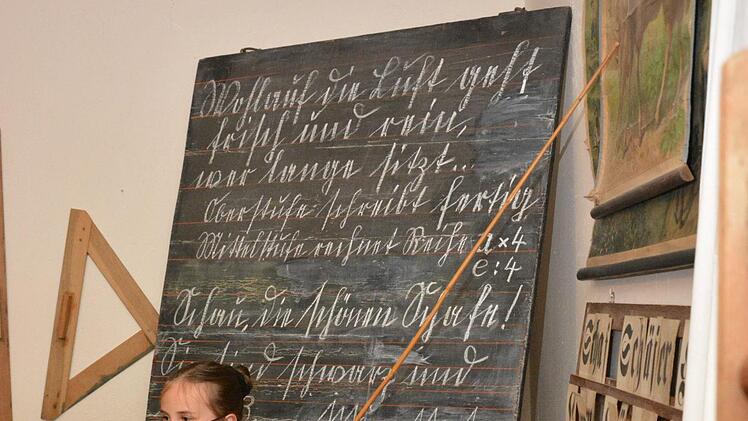 Wohlauf die Luft geht
frisch und rein,
wer lange sitzt..
Oberstufe schreibt fertig
Mittelstufe rechnet Reihe x4
e:4
Schau, die schönen Schafe!
Sie sind schwarz und
Schäfer